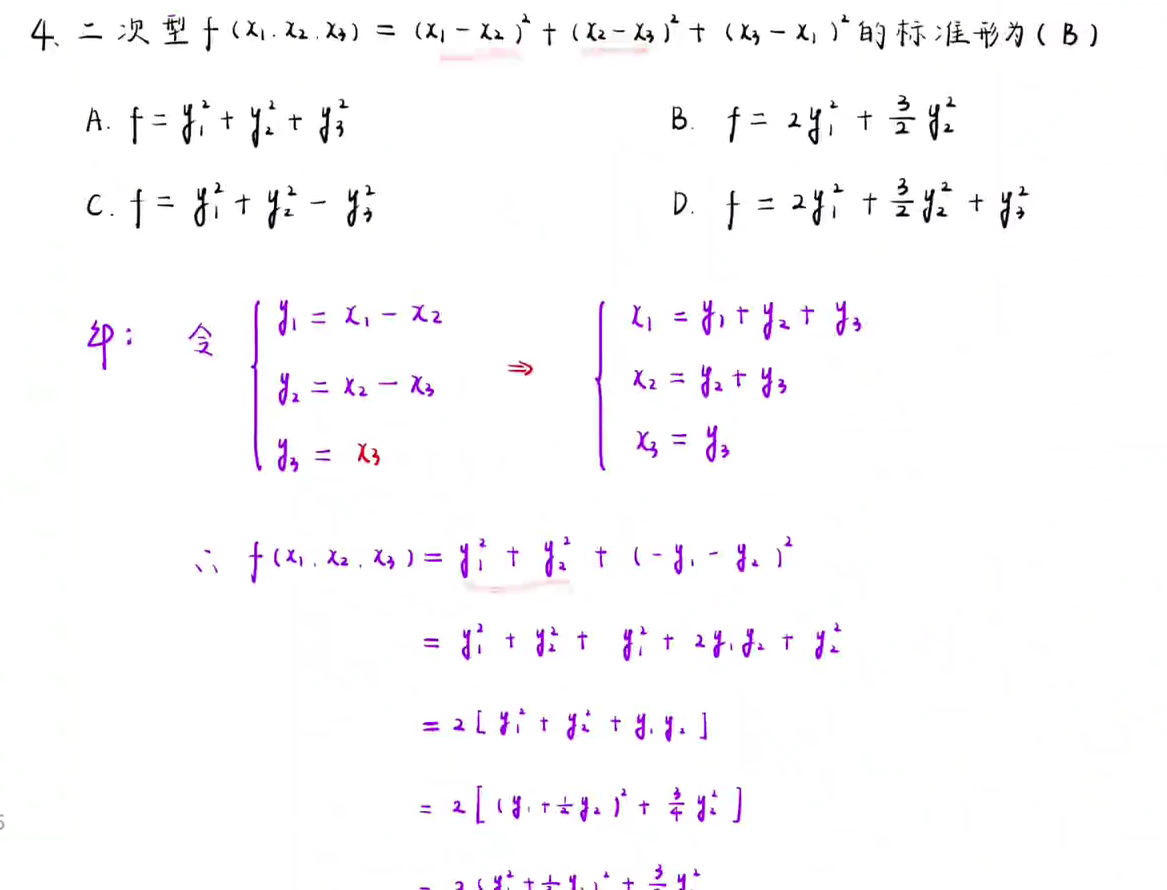 4、二次型 f(x₁.x₂.x₃) = (x₁-x₂)² + (x₂-x₃)² + (x₃-x₁)² 的标准形为(B)
A. f = y₁² + y₂² + y₃² B. f = 2y₁² + 3/2 y₂²
C. f = y₁² + y₂² - y₃² D. f = 2y₁² + 3/2 y₂² + y₃²
令 { y₁ = x₁ - x₂ ⇒ { x₁ = y₁ + y₂ + y₃
y₂ = x₂ - x₃ x₂ = y₂ + y₃
y₃ = x₃ x₃ = y₃
∴ f(x₁.x₂.x₃) = y₁² + y₂² + (-y₁-y₂)²
= y₁² + y₂² + y₁² + 2y₁y₂ + y₂²
= 2[y₁² + y₂² + y₁y₂]
= 2[(y₁+½y₂)² + 3/4 y₂²]